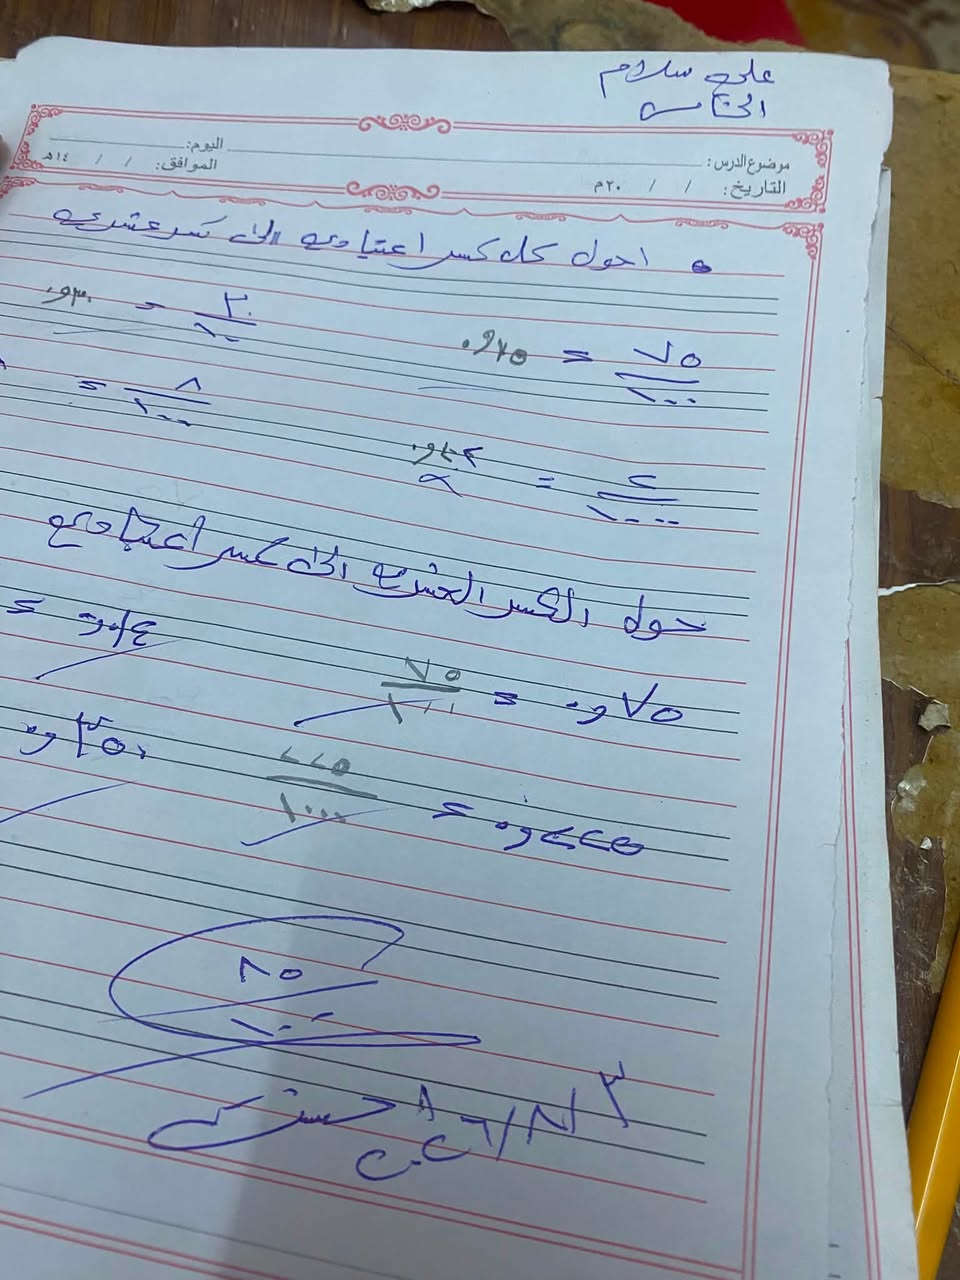 علي سلام
الخامس
موضوع الدرس: اليوم:
التاريخ: / / ٢٠م الموافق: / / ١٤هـ
• احول كل كسر اعتيادي الى كسر عشري
٧٥/١٠٠ = ٧٥و٠
٣٠/١٠٠ = ٣٠و٠
٨/١٠٠ =
٢/١٠٠٠ =
حول الكسر العشري الى كسر اعتيادي
٧٥و٠ = ٧٥/١٠٠
=
٢٢٥و٠ = ٢٢٥/١٠٠٠
٨٥/١٠٠